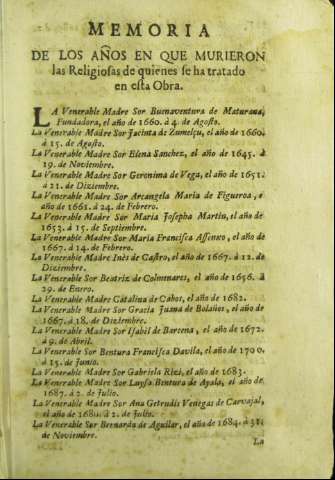 MEMORIA
DE LOS AÑOS EN QUE MURIERON
las Religiosas de quienes se ha tratado
en esta Obra.
LA Venerable Madre Sor Buenaventura de Maturana,
Fundadora, el año de 1660. à 4. de Agosto.
La Venerable Madre Sor Jacinta de Zumelçu, el año de 1660.
à 15. de Agosto.
La Venerable Madre Sor Elena Sanchez, el año de 1645. à
19. de Noviembre.
La Venerable Madre Sor Geronima de Vega, el año de 1651.
à 21. de Diziembre.
La Venerable Madre Sor Arcangela Maria de Figueroa, el
año de 1661. à 24. de Febrero.
La Venerable Madre Sor Maria Josepha Martin, el año de
1653. à 15. de Septiembre.
La Venerable Madre Sor Maria Francisca Assensio, el año de
1667. à 14. de Febrero.
La Venerable Madre Inès de Castro, el año de 1667. à 12. de
Diziembre.
La Venerable Sor Beatriz de Colmenares, el año de 1656. à
29. de Enero.
La Venerable Madre Catalina de Cabos, el año de 1682.
La Venerable Madre Sor Gracia Juana de Bolaños, el año de
1667. à 18. de Diziembre.
La Venerable Madre Sor Isabel de Barcena, el año de 1672.
à 9. de Abril.
La Venerable Sor Bentura Francisca Davila, el año de 1700.
à 15. de Junio.
La Venerable Madre Sor Gabriela Rizi, el año de 1683.
La Venerable Madre Sor Luysa Bentura de Ayala, el año de
1687. à 2. de Julio.
La Venerable Madre Sor Ana Getrudis Venegas de Carvajal,
el año de 1680. à 2. de Julio.
La Venerable Sor Bernarda de Aguilar, el año de 1684. à 31.
de Noviembre.
La